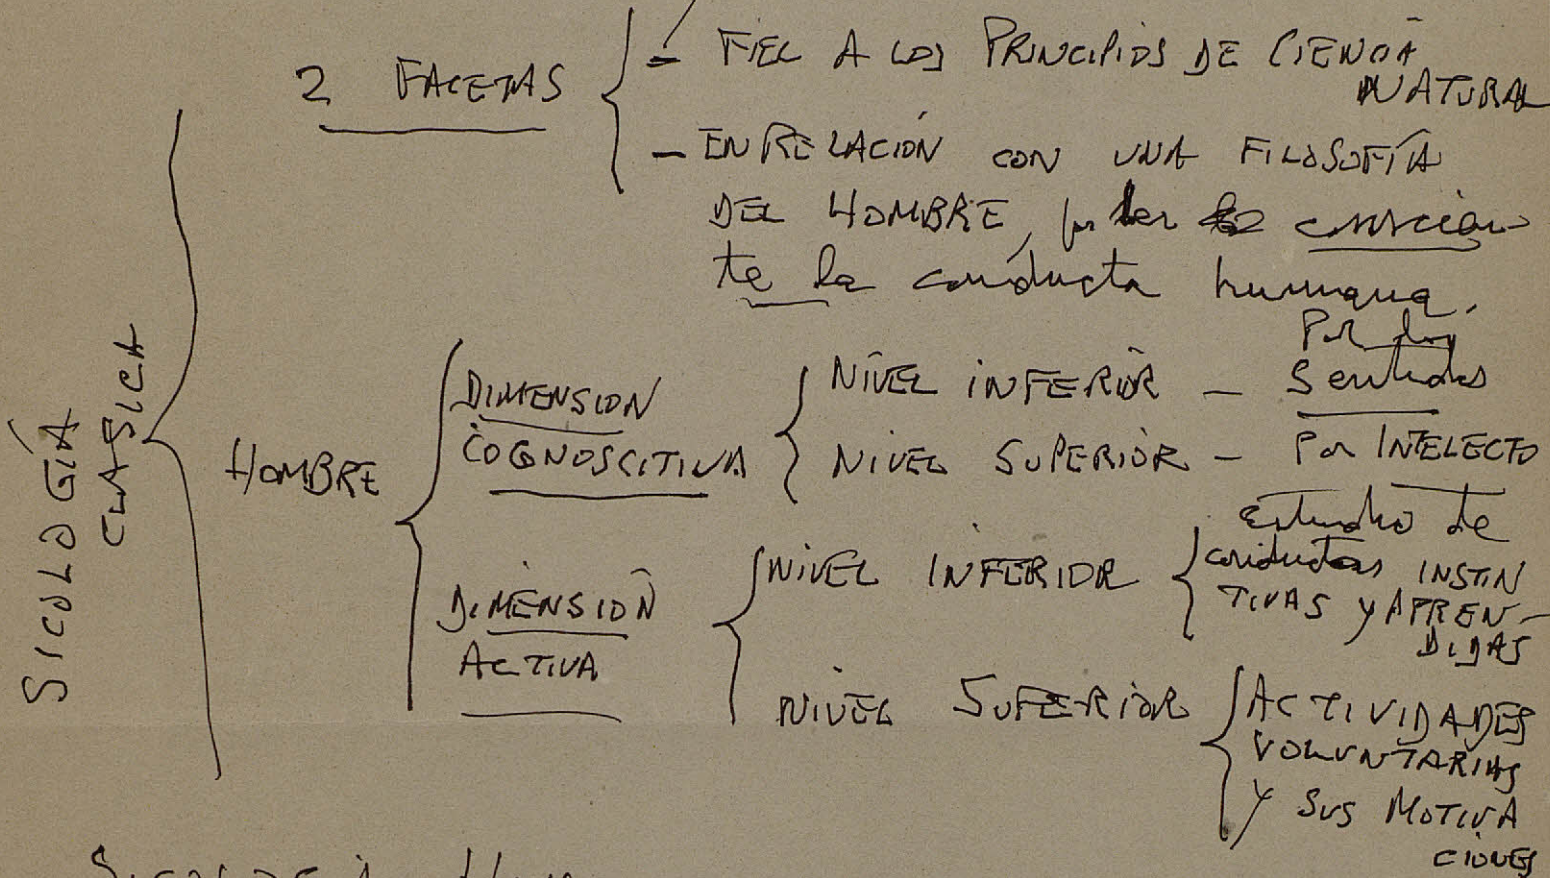 2 FACETAS
- FIEL A LOS PRINCIPIOS DE CIENCIA
NATURAL
- EN RELACIÓN CON UNA FILOSOFÍA
DEL HOMBRE, por ser conscien-
te la conducta humana.
SICOLOGÍA
CLASICA
HOMBRE
DIMENSION
COGNOSCITIVA
NIVEL INFERIOR - Por los
Sentidos
NIVEL SUPERIOR - Por INTELECTO
DIMENSIÓN
ACTIVA
NIVEL INFERIOR
Estudio de
conductas INSTIN
TIVAS Y APREN-
DIDAS
NIVEL SUPERIOR
ACTIVIDADES
VOLUNTARIAS
Y SUS MOTIVA
CIONES